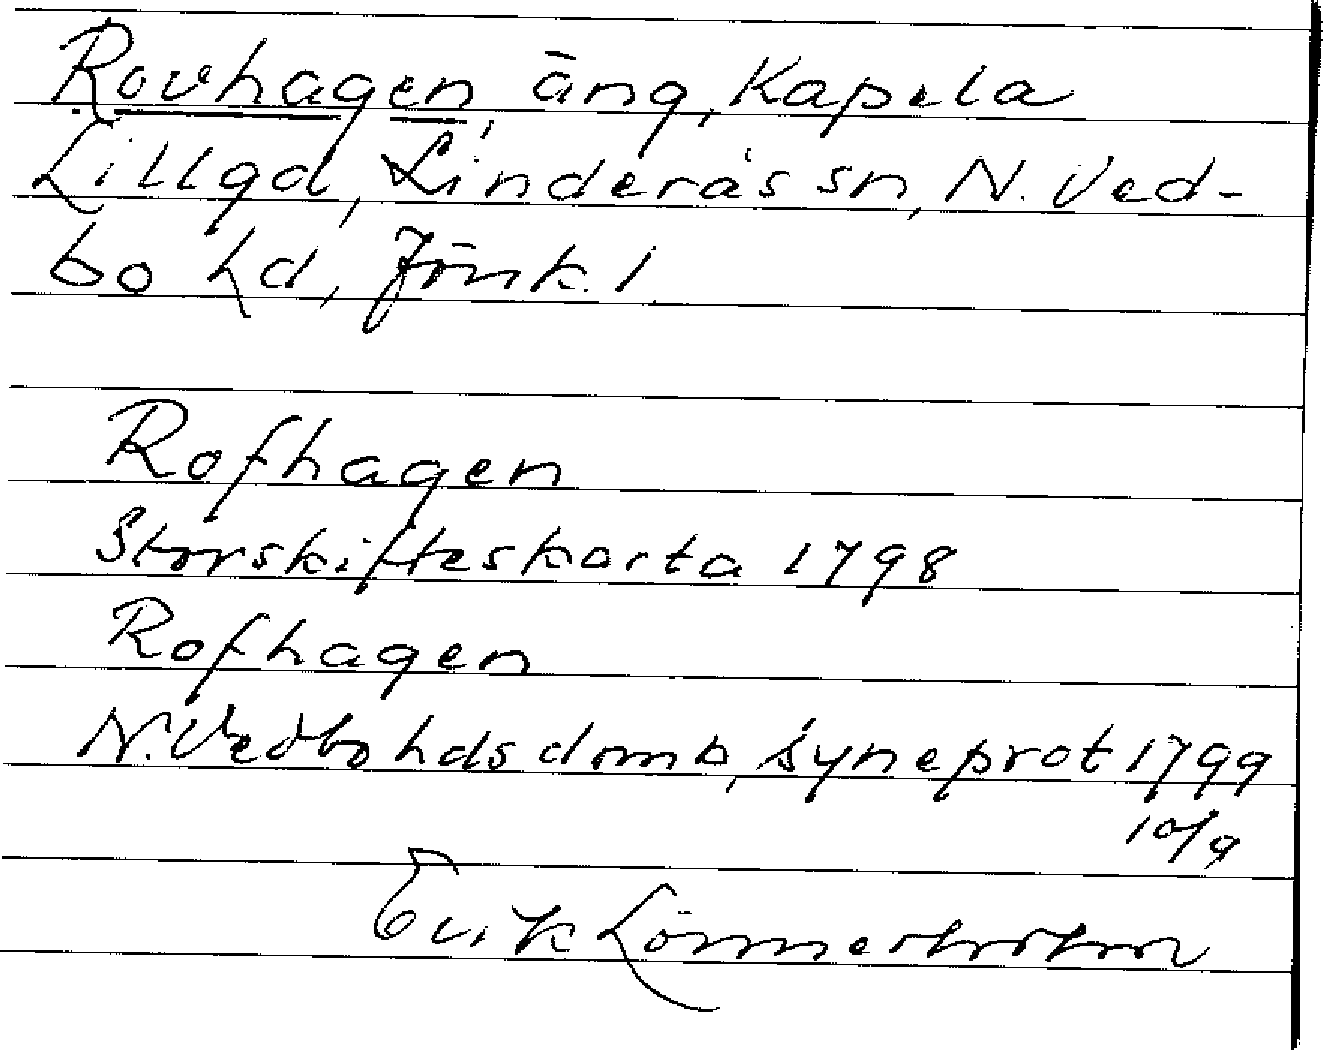 Rovhagen, äng, Kapela
Lillgd, Linderås sn, N. Ved-
bo hd, Jönk. l
Rofhagen
Storskifteskarta 1798
Rofhagen
N. Vedbo hds domb, syneprot 1799
10/9
Erik Lönnerholm